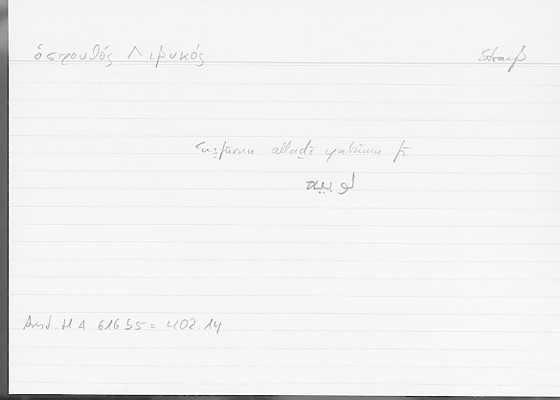 ὁ στρουθός Λιβυκός Strauß
ʿuṣfūrun allaḏī yakūnu fī
لوبيه
Arist. H A. 616 b5 = 402.14